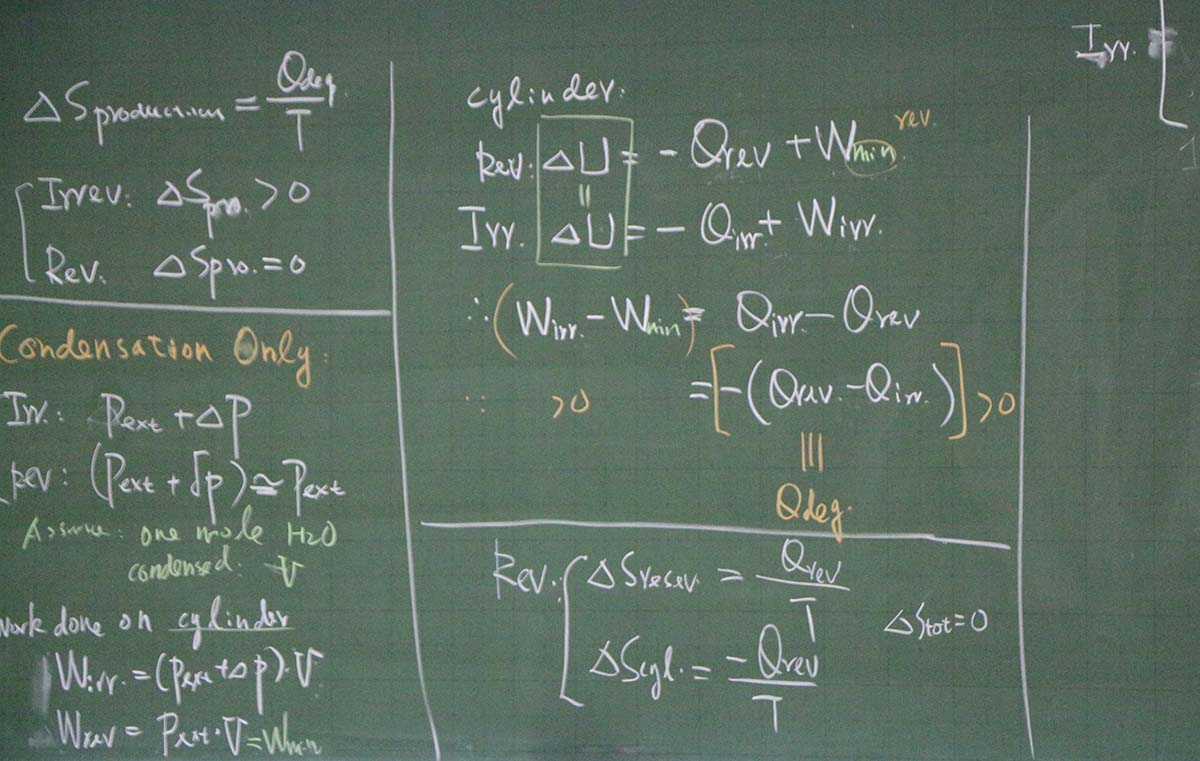 ΔSproduction = Qdeg / T
Irrev: ΔSpro. > 0
Rev. ΔSpro. = 0
Condensation Only:
Irr.: Pext + ΔP
Rev: (Pext + δp) ≃ Pext
Assume: one mole H2O
condensed: V
work done on cylinder
Wirr. = (Pext + Δp)·V
Wrev = Pext·V = Wmin
cylinder.
Rev: ΔU = - Qrev + Wmin rev.
=
Irr. ΔU = - Qirr. + Wirr.
∴ (Wirr. - Wmin) = Qirr. - Qrev
∵ >0 = [-(Qrev. - Qirr.)] >0
≡
Qdeg.
Rev: ΔSreser = Qrev / T
ΔStot = 0
ΔScyl. = -Qrev / T
Irr. =